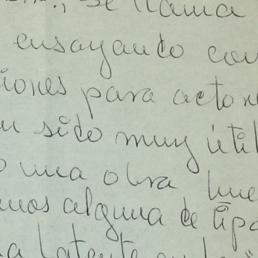 se llama
ensayando con
iones para actore
sido muy útil
una obra bue
mos alguna de tipo
la latente